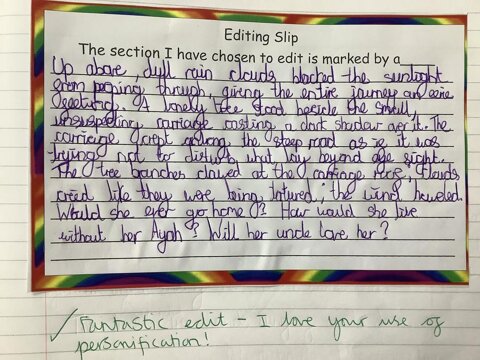 Editing Slip
The section I have chosen to edit is marked by a
Up above, dull rain clouds blocked the sunlight
from peeping through, giving the entire journey an eerie
feeling. A lonely tree stood beside the small,
unsuspecting carriage casting a dark shadow over it. The
carriage crept along the steep road as if it was
trying not to disturb what lay beyond sight.
The tree branches clawed at the carriage roof, clouds
cried like they were being tortured; the wind howled.
Would she ever go home? How would she live
without her Ayah? Will her uncle love her?
✓ Fantastic edit - I love your use of
personification!